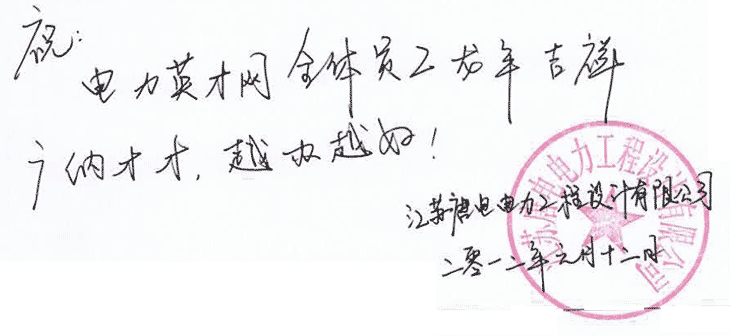 祝:
电力英才网全体员工龙年吉祥
广纳才才,越办越好!
江苏唐电电力工程设计有限公司
二零一二年元月十二日
江苏唐电电力工程设计有限公司